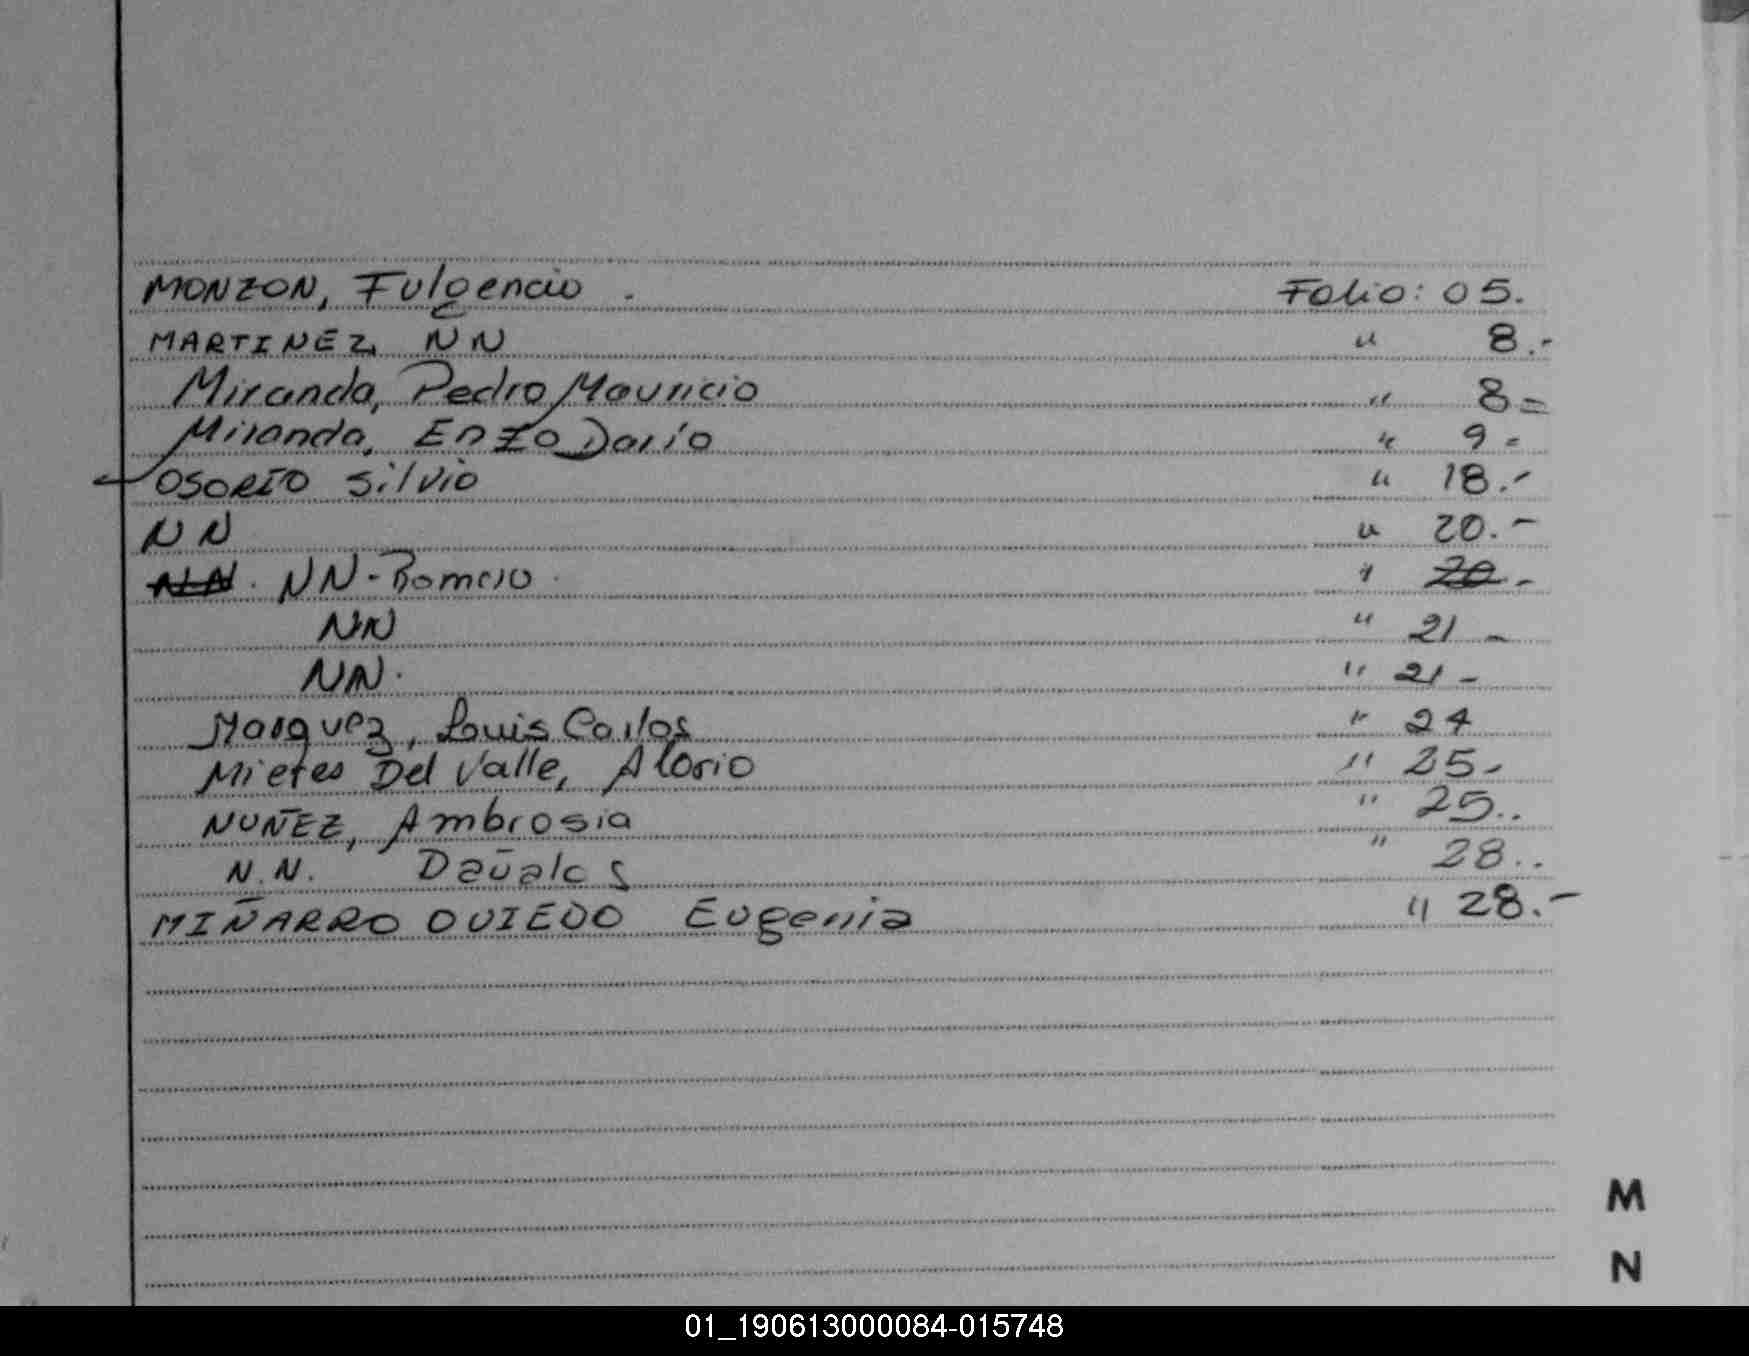 MONZON, Fulgencio . Folio: 05.
MARTINEZ, NN " 8.-
Miranda, Pedro Mauricio " 8=
Miranda, Enzo Dario " 9-
OSORIO Silvio " 18.-
NN " 20.-
NN. NN-Romero " 20.-
NN " 21-
NN. " 21-
Marquez, Louis Carlos " 24
Mieres Del Valle, " 25-
NUÑEZ, Ambrosia " 25..
N.N. Davalos " 28..
MIÑARRO OVIEDO Eugenia " 28.-
M
N
01_190613000084-015748